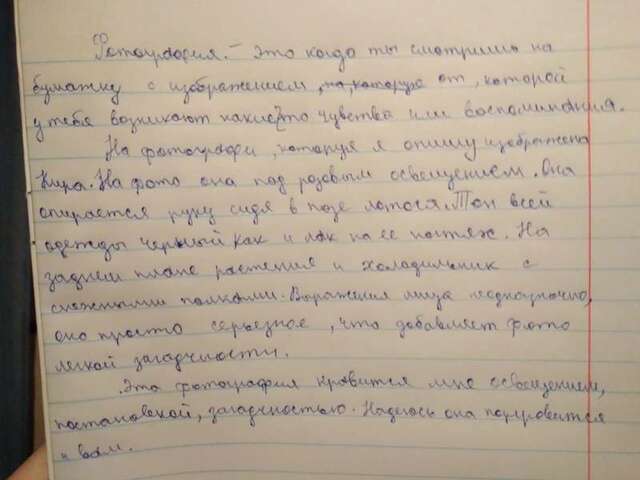 Фотография. – Это когда ты смотришь на
бумажку с изображением, на которую от, которой
у тебя возникают какие-то чувства или воспоминания.
На фотографи, которую я опишу изображена
Кира. На фото она под розовым освещением. Она
опирается руку сидя в позе лотоса. Тон всей
одежды черный как и лак на ее ногтях. На
заднем плане растения и холодильник с
снежными полками. Выражения лица неоднозначно,
оно просто серьезное, что добавляет фото
легкой загадчности.
Эта фотография нравится мне освещением,
постановкой, загадчностью. Надеюсь она понравится
и вам.